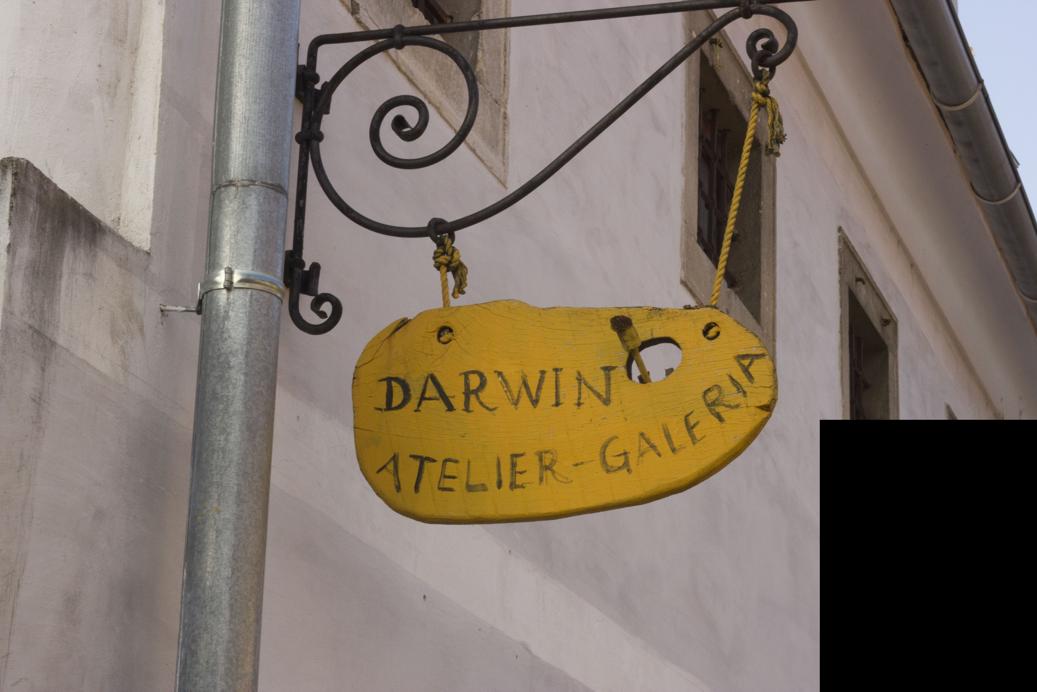 DARWIN
ATELIER-GALERIA